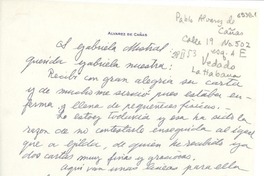 ALVAREZ DE CAÑAS
Pablo Alvarez de
Cañas
Calle 19 No. 502
esq. a E
Vedado
La Habana
A Gabriela Mistral
querida Gabriela nuestra:
Recibí con gran alegría su carta
y de mucho me servió pues estaba en-
ferma y llena de pequeñeces físicas.
no estoy todavía y esa ha sido la
razón de no contestarle enseguida al igual
que a
de quien he recibido ya
dos cartas muy finas y graciosas.
Aquí van unas líneas para ella